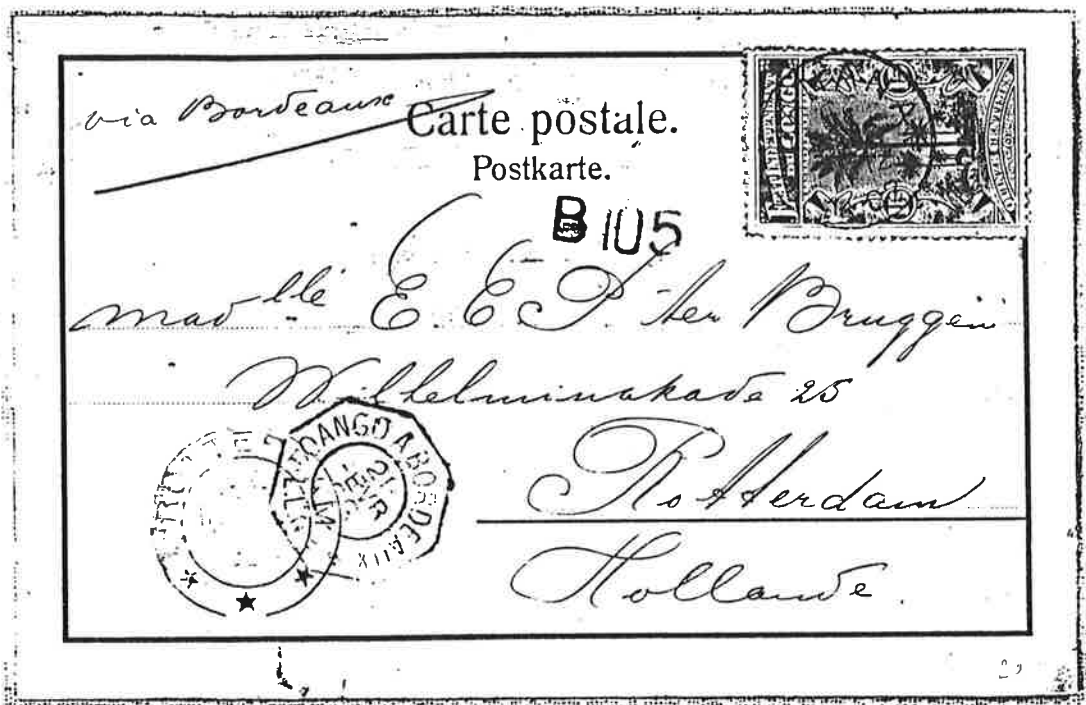 via Bordeaux
Carte postale.
Postkarte.
B 105
Madlle E. E. P. ter Bruggen
Wilhelminakade 25
Rotterdam
Hollande.
LOANGO A BORDEAUX
21